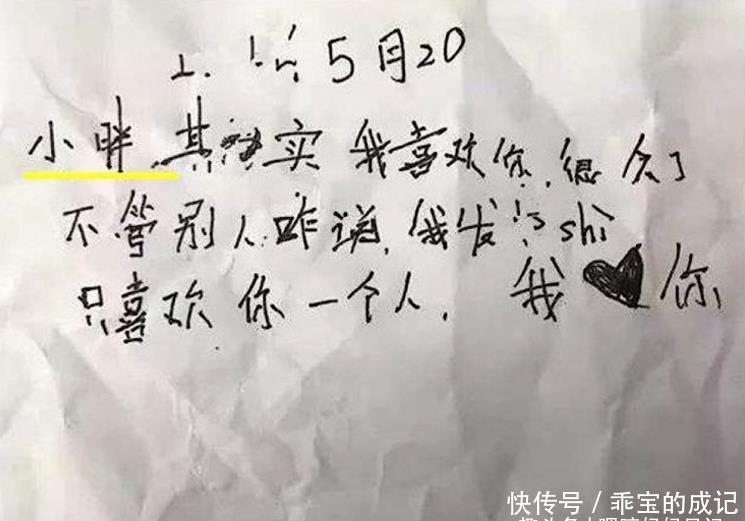 5月20
小胖.其实 我喜欢你.很久了
不管别人咋说,我发 shi
只喜欢你一个人. 我♥你
快传号 / 乖宝的成记